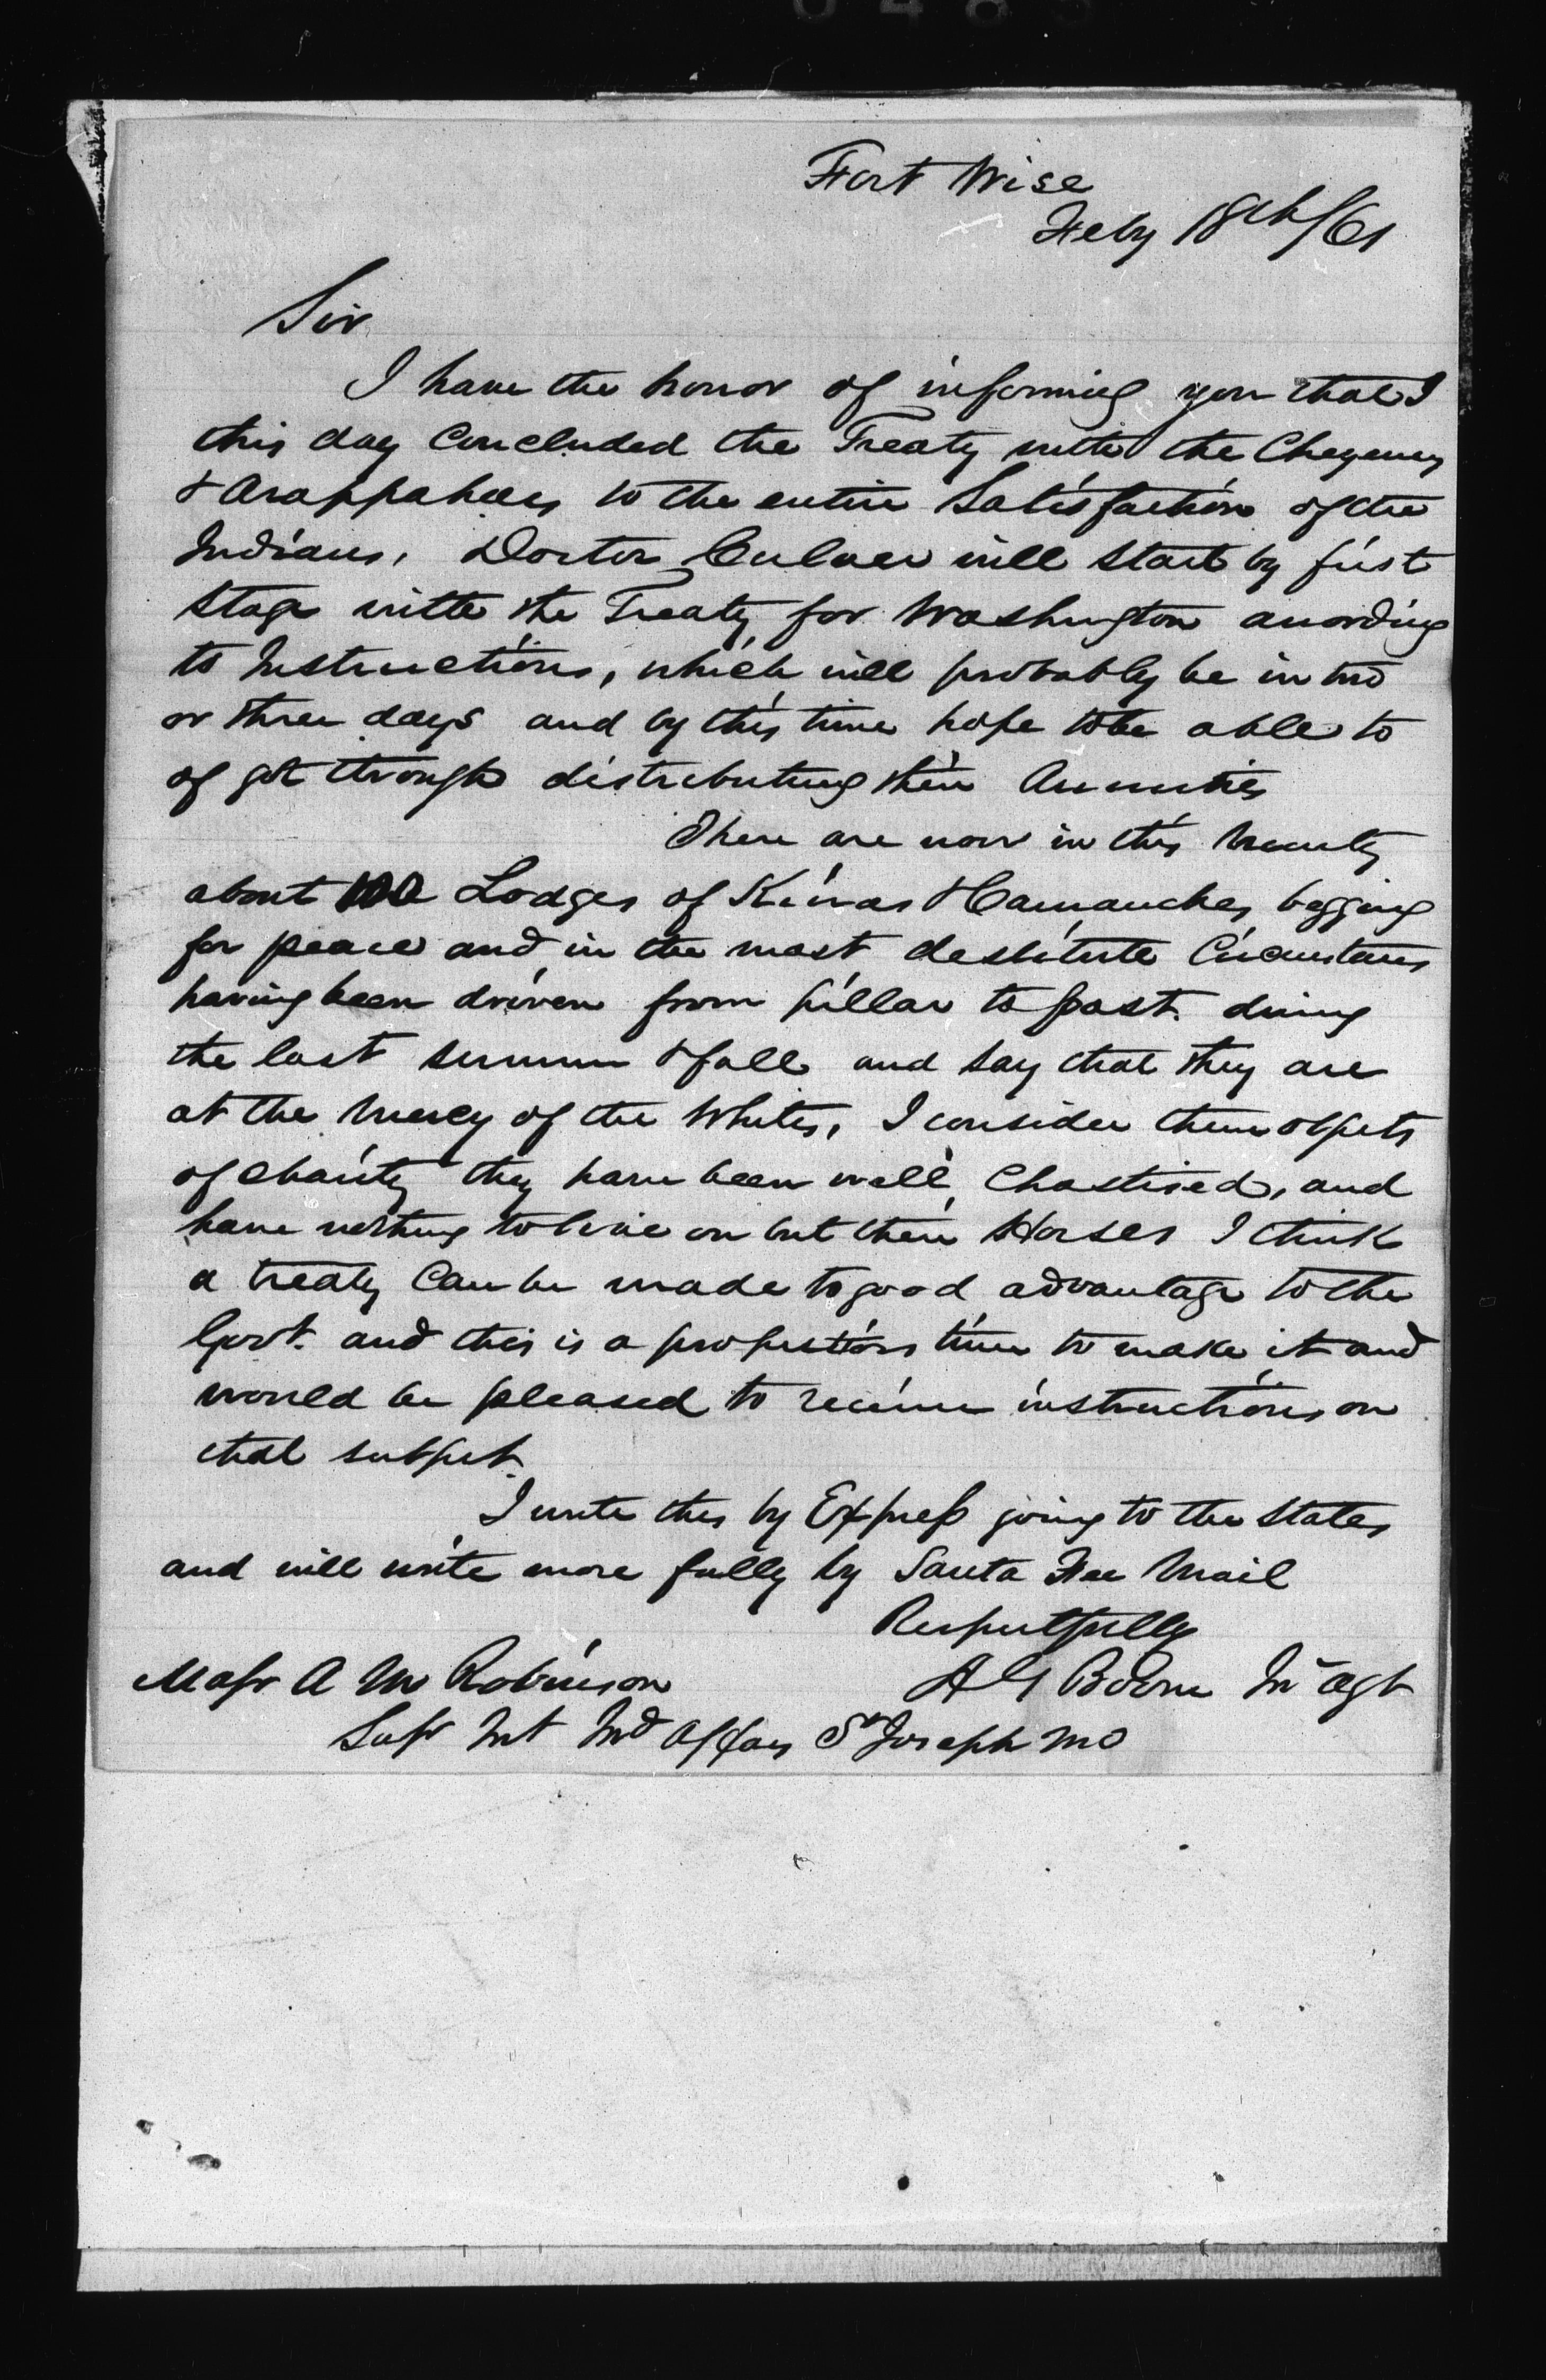 Fort Wise
Feby 18th/61
Sir
I have the honor of informing you that I
this day concluded the Treaty with the Cheyennes
& Arappahoes to the entire Satisfaction of the
Indians, Doctor Culver will start by first
stage with the Treaty for Washington according
to Instructions, which will probably be in two
or three days and by this time hope to be able to
of got through distributing their Annuities
There are now in this vicinity
about 100 Lodges of Kiowas & Camanches begging
for peace and in the most destitute Circumstances
having been driven from pillar to post. during
the last summer & fall and say that they are
at the mercy of the Whites, I consider them objects
of charity they have been well Chastised, and
have nothing to live on but their Horses I think
a treaty Can be made to good advantage to the
Govt. and this is a propitious time to make it and
would be pleased to receive instructions on
that subject.
I write this by Express going to the States
and will write more fully by Santa Fee Mail
Respectfully
A G Boone In Agt
Majr A M Robinson
Supt Ind Affairs St Joseph Mo